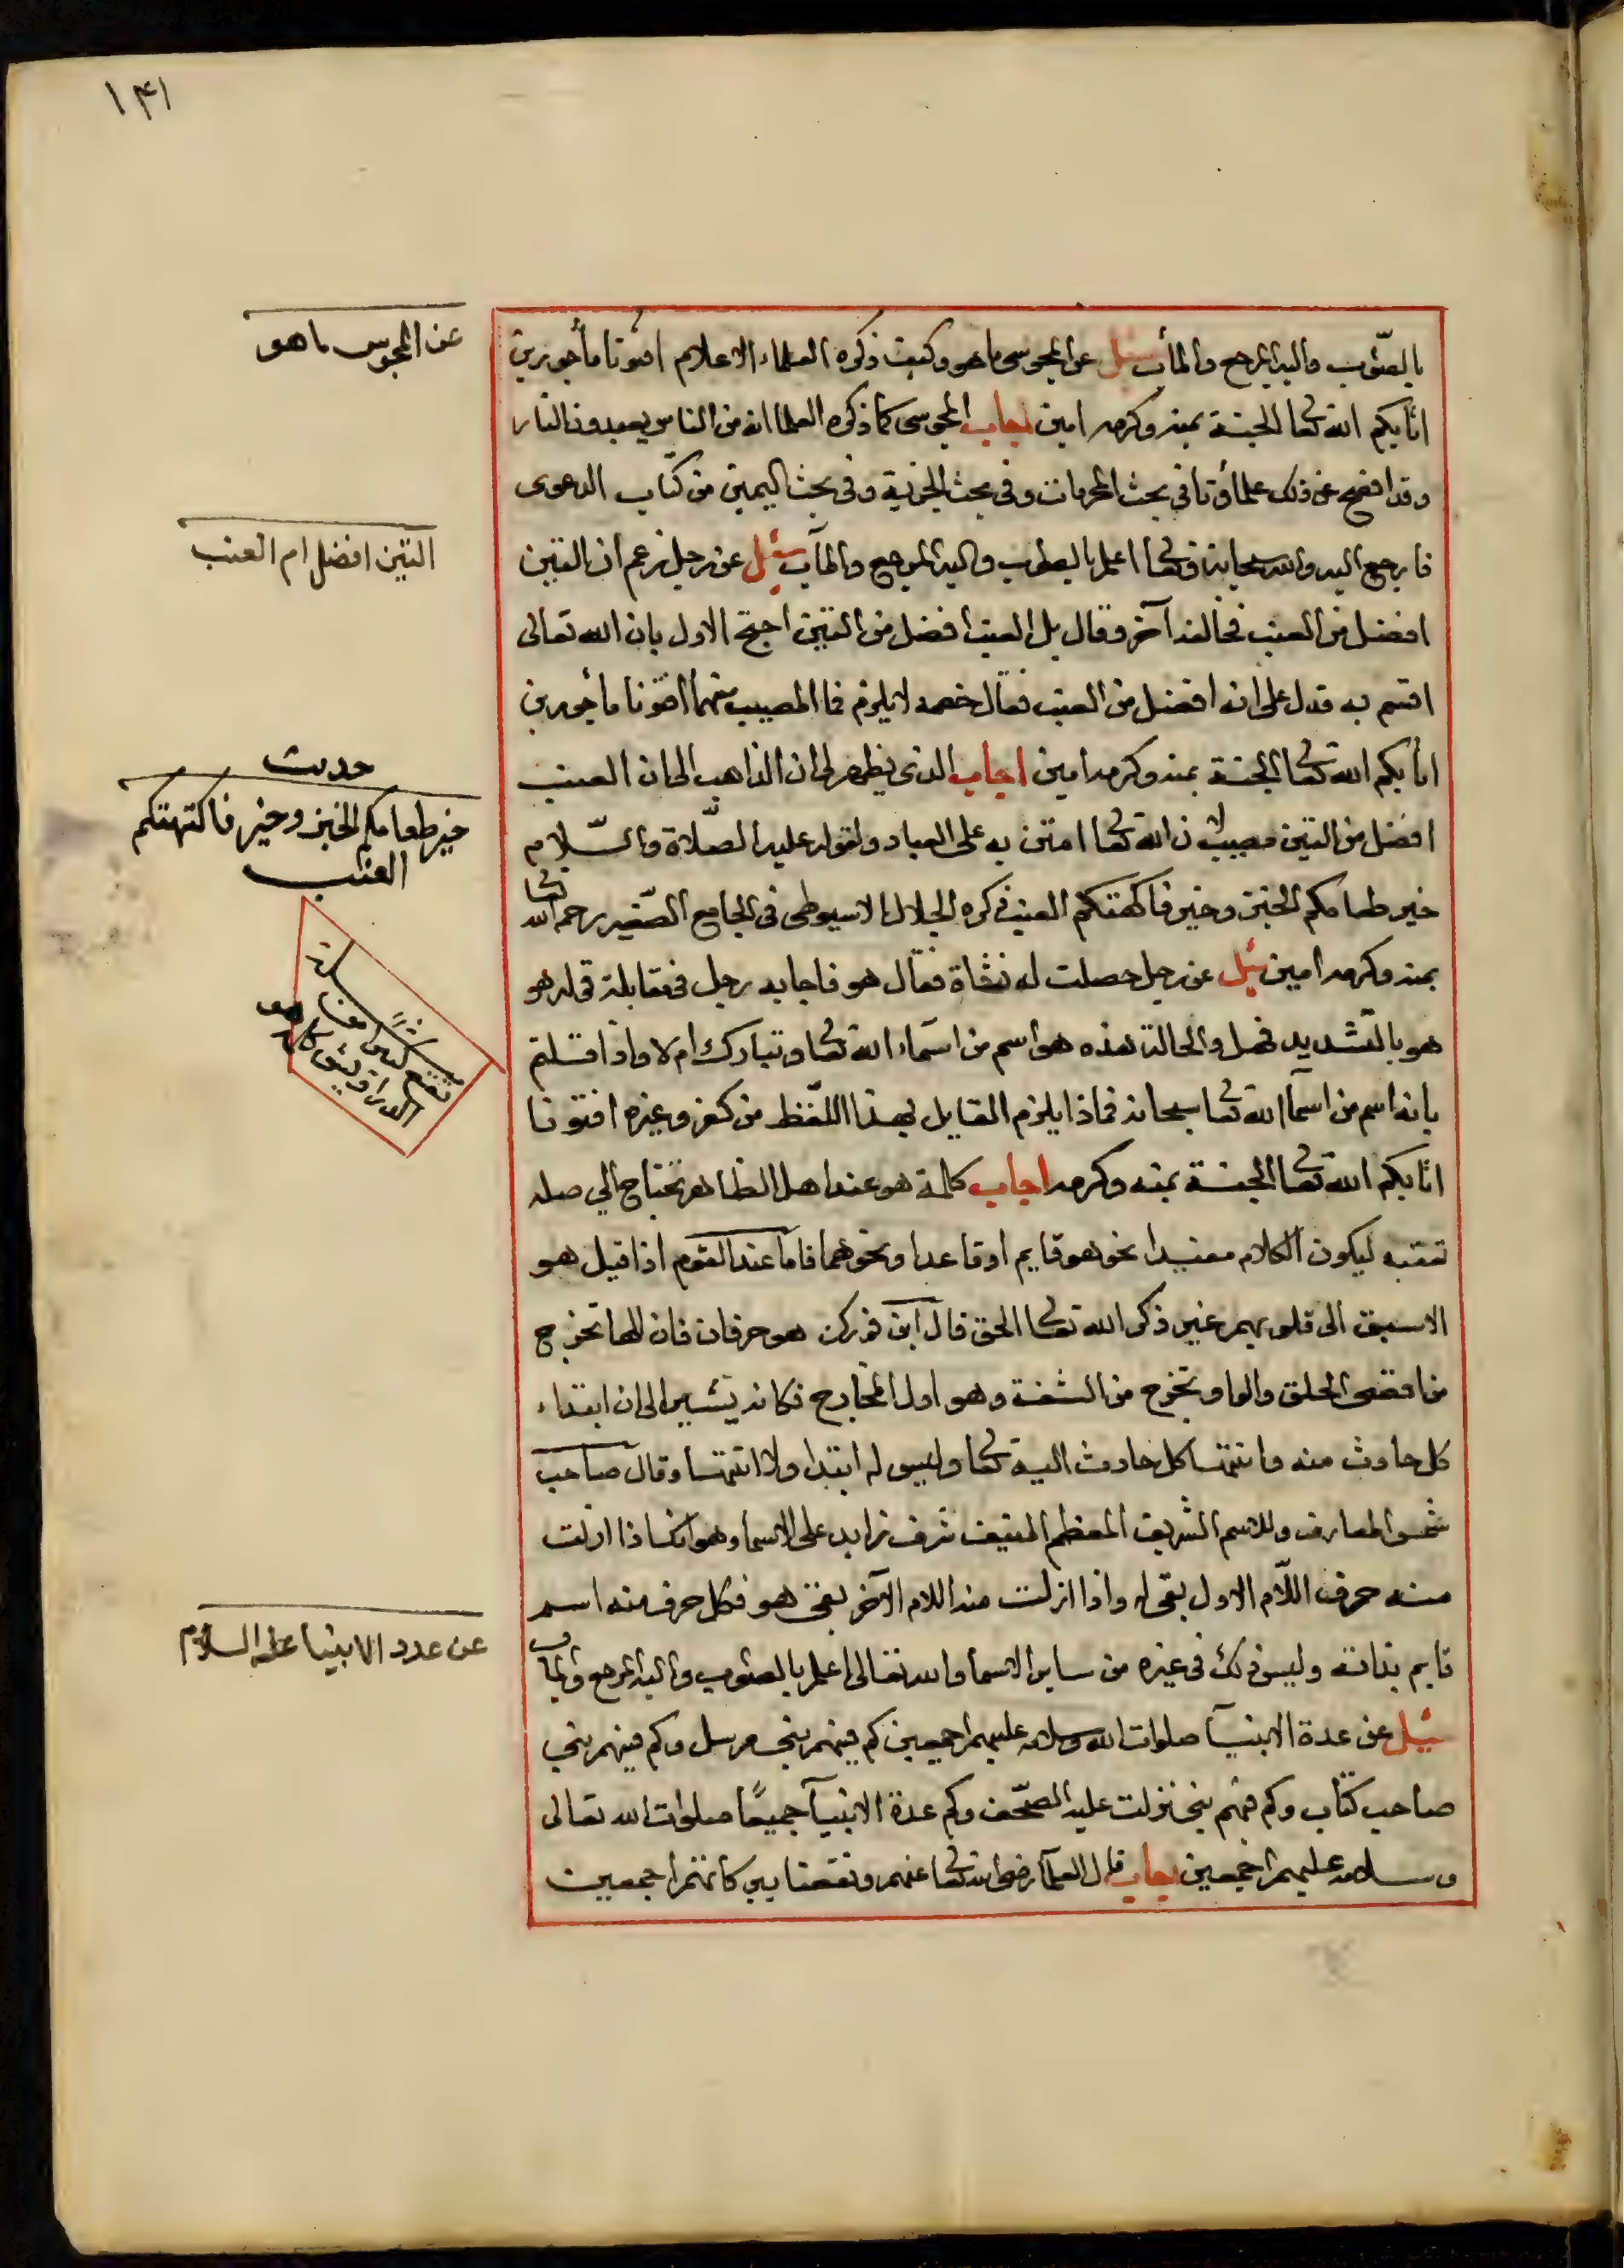 ١٤١
بالصّوب واليه المرجع والمأب سئل عن المجوسى ما هو وكيف ذكره العلماء الاعلام افتونا مأجورين
اثابكم الله تعا الجنة بمنه وكرمه امين اجاب المجوسى كما ذكره العلما انه من الناس يعبدون النار
وقد افصح عن ذلك علماؤنا في بحث المحرمات وفى بحث الجزية وفى بحث اليمين من كتاب الدعوى
فارجع اليه والله سبحانه وتعا اعلم بالصوب واليه المرجع والمآب سئل عن رجل زعم ان التين
افضل من العنب فخالفه آخر وقال بل العنب افضل من التين احتج الاول بان الله تعالى
اقسم به فدل على انه افضل من العنب فقال خصمه لا يلزم فما المصيب منهما افتونا مأجورين
اثابكم الله تعا الجنة بمنه وكرمه امين اجاب الذى يظهر لى ان الذاهب الى ان العنب
افضل من التين مصيب لان الله تعا امتن به على العباد ولقوله عليه الصّلاة والسّلام
خير طعامكم الخبز وخير فاكهتكم العنب ذكره الجلال الاسيوطى فى الجامع الصّغير رحمه الله تعا
بمنه وكرمه امين سئل عن رجل حصلت له نشاة فقال هو فاجابه رجل فى مقابلة قوله هو
هو بالتشديد فهل والحالة هذه هو اسم من اسماء الله تعا وتبارك ام لا واذا قلتم
بانه اسم من اسمآ الله تعا سبحانه فماذا يلزم القايل بهذا اللفظ من كفر وغيره افتونا
اثابكم الله تعا الجنة بمنه وكرمه اجاب كلمة هو عند اهل الظاهر تحتاج الي صله
تعقبه ليكون الكلام مفيدا نحو هو قايم او قاعد او نحوهما فاما عند القوم اذا قيل هو
الاسبق الى قلوبهم غير ذكر الله تعا الحق قال ابن فورك هو حرفان فان الها تخرج
من اقصى الحلق والواو تخرج من الشفة وهو اول المخارج فكانه يشير الى ان ابتداء
كل حادث منه وانتها كل حادث اليه تعا وليس له ابتدا ولا انتها وقال صاحب
شمس المعارف وللاسم الشريف المعظم المنيف شرف زايد على الاسما وهو انك اذا ازلت
منه حرف اللّام الاول بقى له واذا ازلت منه اللام الآخر بقى هو فكل حرف منه اسم
قايم بذاته وليس ذلك فى غيره من ساير الاسما والله تعالى اعلم بالصوب واليه المرجع والمأب
سئل عن عدة الانبيآ صلوات الله وسلامه عليهم اجمعين كم فيهم نبى مرسل وكم فيهم نبى
صاحب كتاب وكم فيهم نبى نزلت عليه الصّحف وكم عدة الانبيآ جميعًا صلوات الله تعالى
وسلامه عليهم اجمعين اجاب قال العلمآ رضى الله تعا عنهم ونفعنا ببركاتهم اجمعين
عن المجوس ما هو
التين افضل ام العنب
حديث
خير طعامكم الخبز وخير فاكتهتكم
العنب
عن عدد الانبيا عله السلام